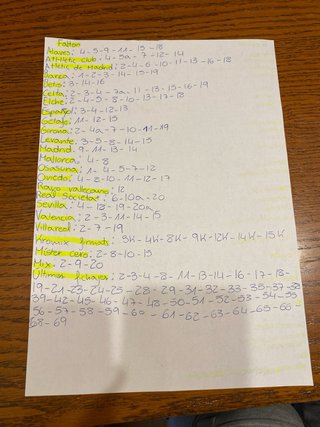 Faltan
Alaves: 4-5-9-11-15-18
Athletic club: 4-5a-7-12-14
Atletic de Madrid: 2-4-6-10-11-13-16-18
Barca: 1-2-3-14-15-19
Betis: 3-14-16
Celta: 2-3-4-7a-11-13-15-16-19
Elche: 2-4-5-8-10-13-17-18
Español: 3-4-12-13
Getafe: 11-12-15
Girona: 2-4a-7-10-11-19
Levante: 3-5-8-14-15
Madrid: 9-11-13-14
Mallorca: 4-8
Osasuna: 1-4-5-7-12
Oviedo: 4-8-10-11-12-17
Rayo vallecano: 12
Real Societat: 6-10a-20
Sevilla: 4-18-19-20a
Valencia: 2-3-11-14-15
Villareal: 2-7-19
3K-4K-8K-9K-12K-14K-15K
Mister cero: 2-8-10-15
Mix: 2-9-20
Ultimos fichajes: 2-3-4-8-11-13-14-16-17-18-
19-21-23-24-25-28-29-31-32-33-35-37-38
39-42-45-46-47-48-50-51-52-53-54-55
56-57-58-59-60-61-62-63-64-65-66-
68-69